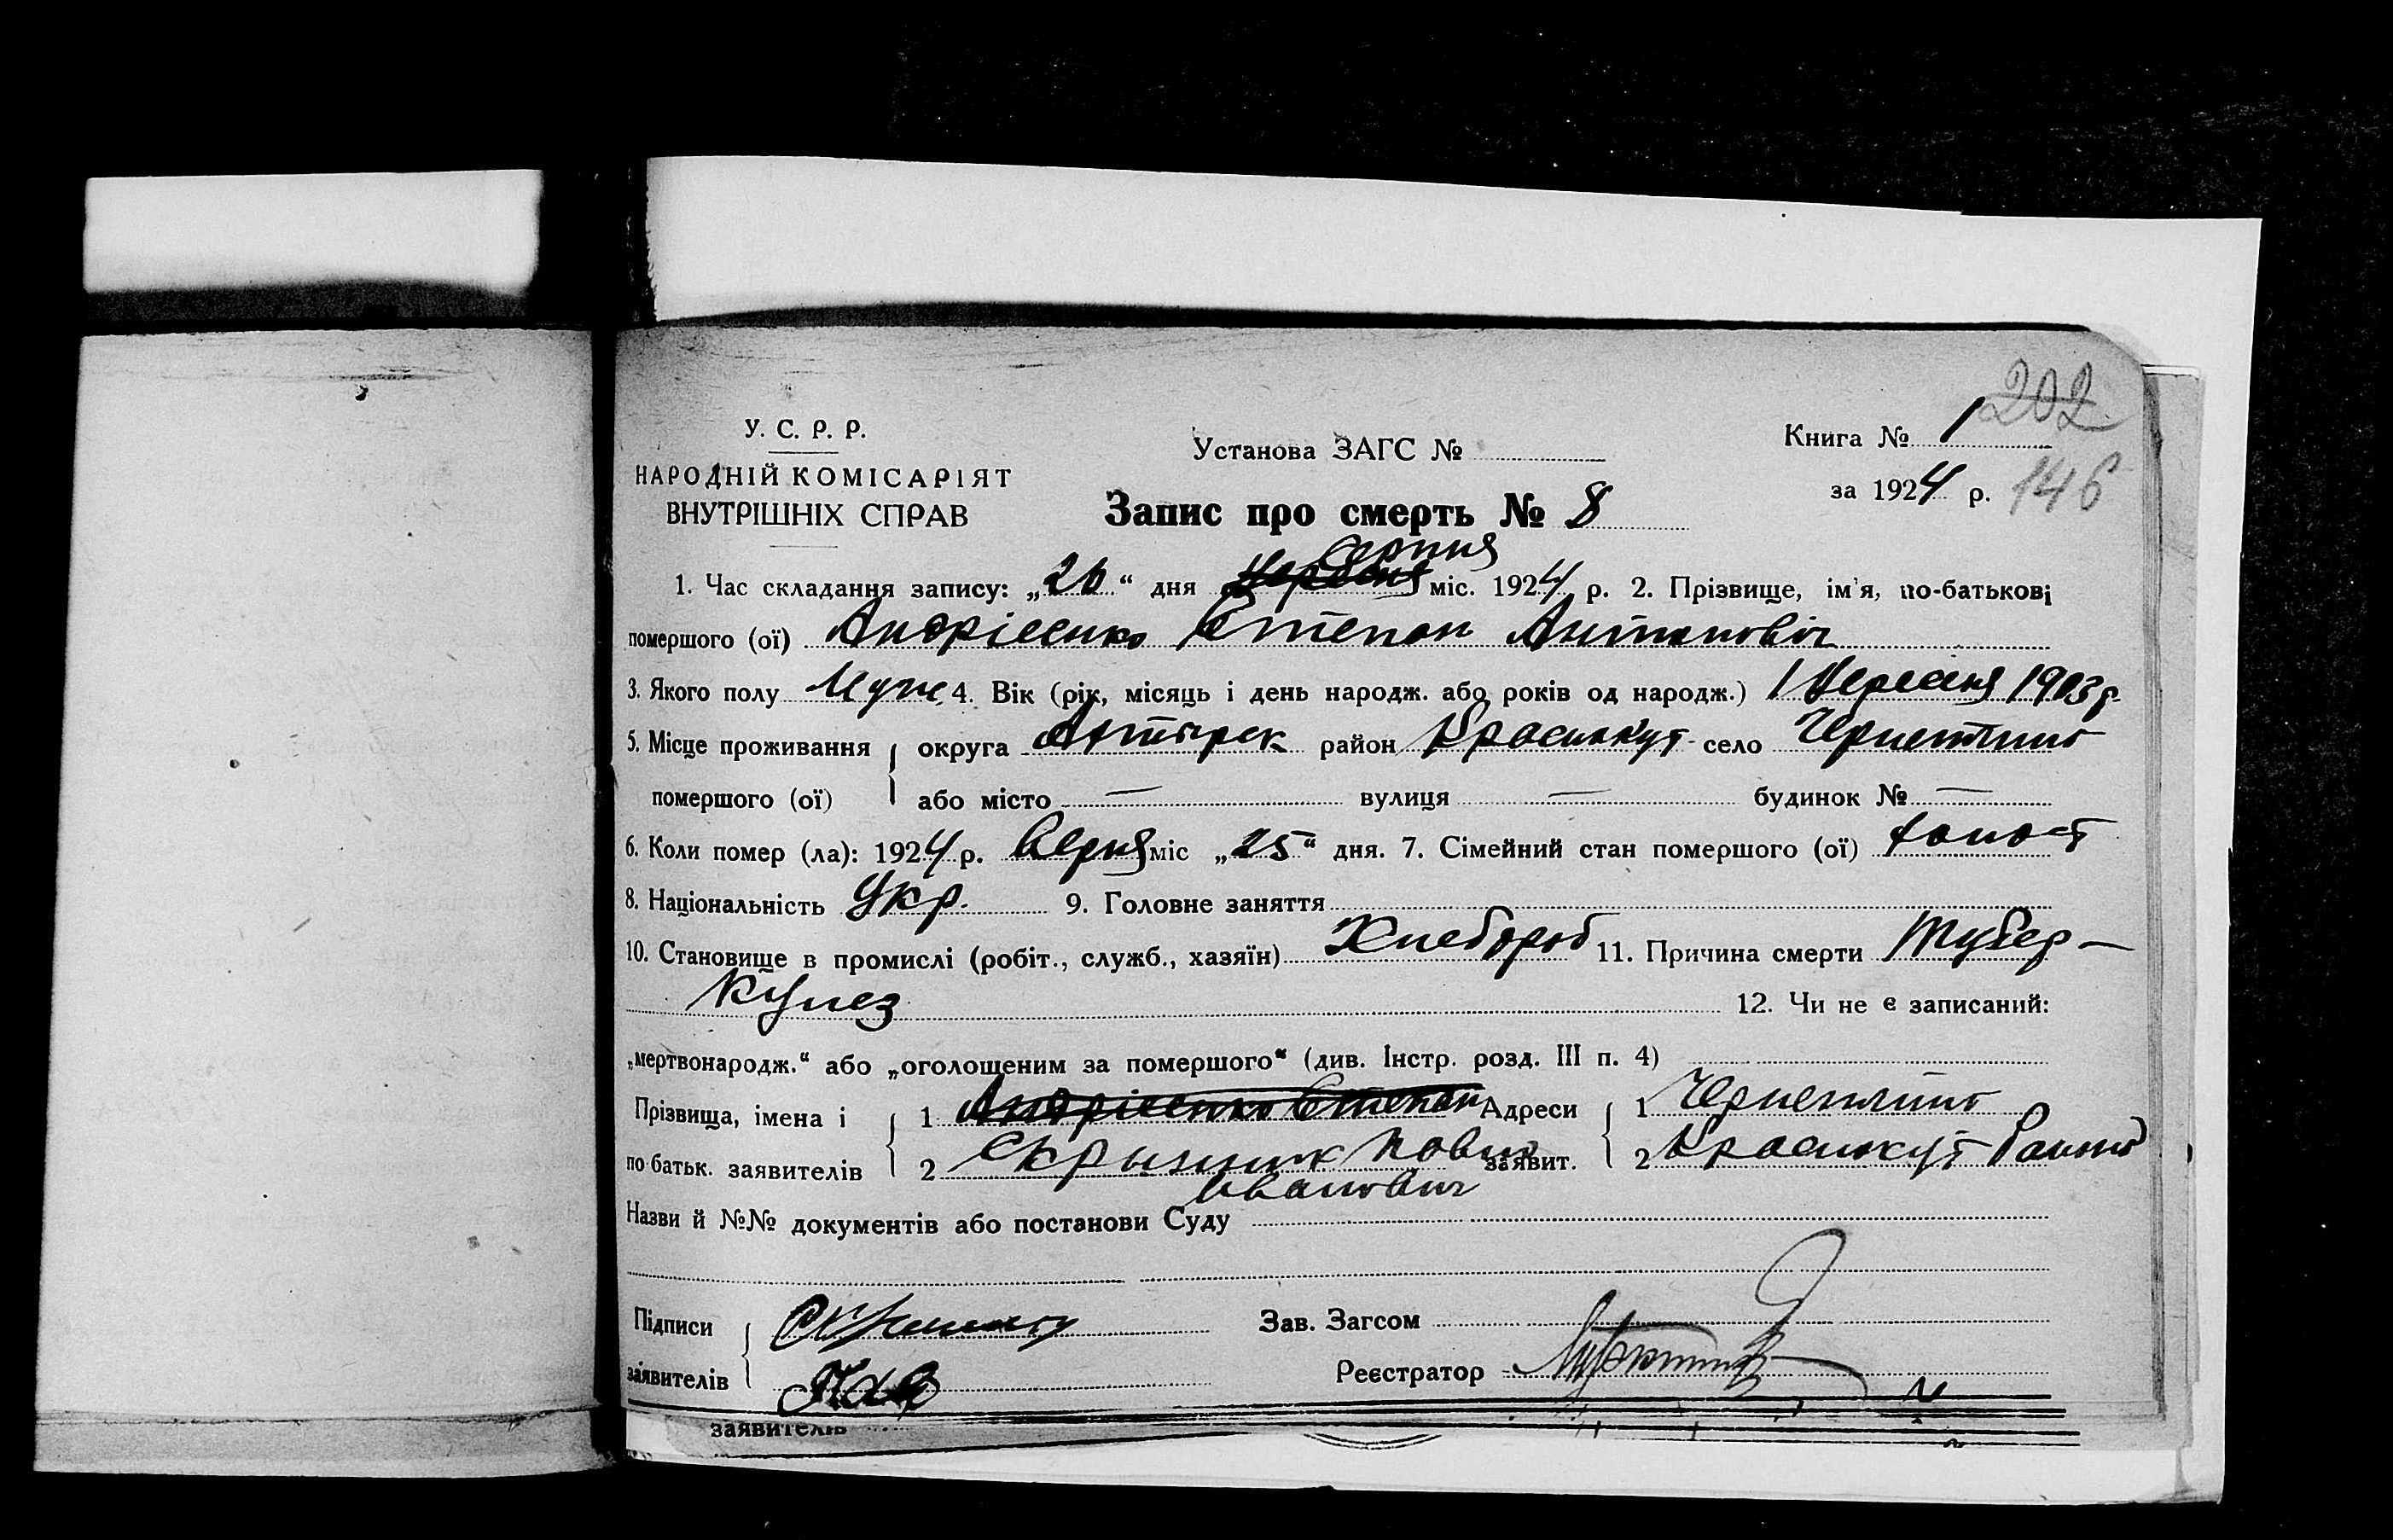 202
У. С. Р. Р.
Установа ЗАГС №
Книга № 1
НАРОДНІЙ КОМІСАРІЯТ
за 1924 р. 146
ВНУТРІШНІХ СПРАВ
Запис про смерть № 8
Серпня
1. Час складання запису: „26“ дня міс. 1924 р. 2. Прізвище, ім'я, по-батькові
помершого (ої) Андрієенко Степан Антонович
3. Якого полу Муж 4. Вік (рік, місяць і день народж. або років од народж.) 1 Вересня 1903 р.
5. Місце проживання округа Охтирск район Краснокут село Чернетчино
помершого (ої) або місто — вулиця — будинок № —
6. Коли помер (ла): 1924 р. міс „25“ дня. 7. Сімейний стан помершого (ої) холост
8. Національність Укр. 9. Головне заняття
10. Становище в промислі (робіт., служб., хазяїн) Хлебороб 11. Причина смерти Тубер-
кулез 12. Чи не є записаний:
„мертвонародж.“ або „оголощеним за помершого“ (див. Інстр. розд. III п. 4)
Прізвища, імена і 1 Андрієенко Степан Адреси 1 Чернетчино
по батьк. заявителів 2 Скрынник заявит. 2 Краснокут Району
Иванович
Назви й №№ документів або постанови Суду
Підписи
Зав. Загсом
заявителів
Реєстратор
заявителів